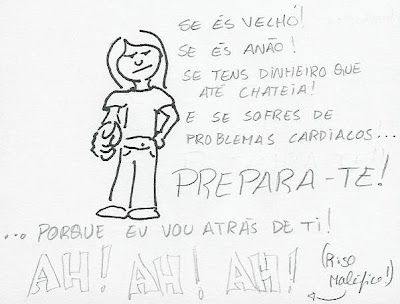 SE ÉS VELHO!
SE ÉS ANÃO!
SE TENS DINHEIRO QUE
ATÉ CHATEIA!
E SE SOFRES DE
PROBLEMAS CARDÍACOS...
PREPARA-TE!
...PORQUE EU VOU ATRÁS DE TI!
AH! AH! AH!
(RISO
MALÉFICO!)